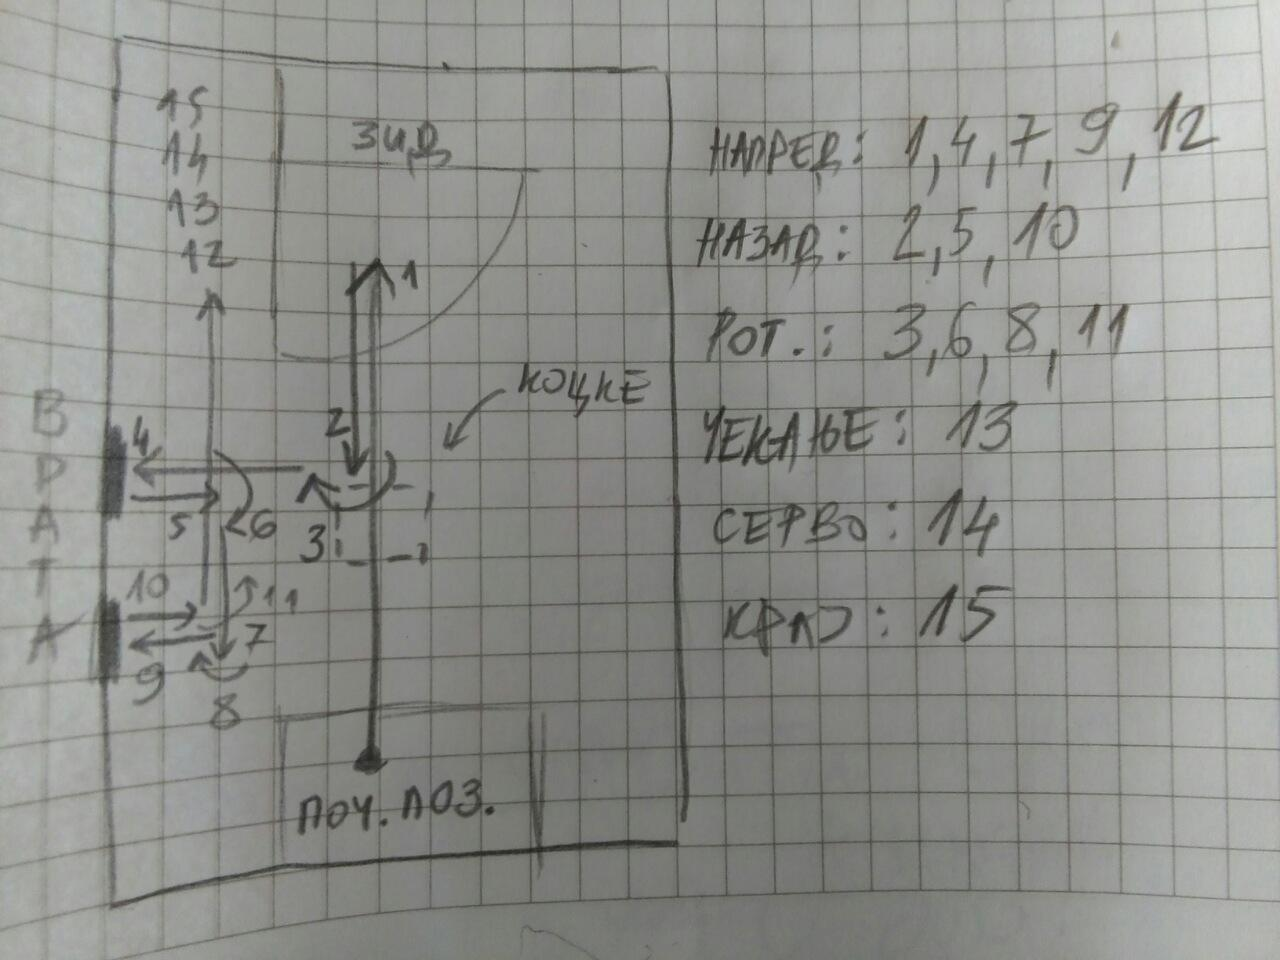 15
14
13
12
ЗИД
1
КОЦКЕ
2
4
3
5
6
10
11
7
9
8
ПОЧ. ПОЗ.
ВРАТА
НАПРЕД: 1,4,7,9,12
НАЗАД: 2,5,10
РОТ.: 3,6,8,11
ЧЕКАЊЕ: 13
СЕРВО: 14
КРАЈ: 15